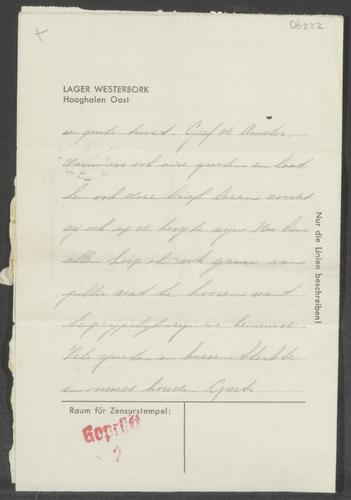 D6222
LAGER WESTERBORK
Hooghalen Oost
en groote troost. Geef de Amster-
dammers ook onze groeten en laat
hen ook deze brief lezen zoodat
zij ook op de hoogte zijn. Van
allen hoop ik ook gauw van
jullie wat te hooren want
begrijpelijk zijn we benieuwd.
Vele groeten en kussen Sterkte
en moed houden Greet.
Nur die Linien beschreiben!
Raum für Zensurstempel:
Geprüft
2